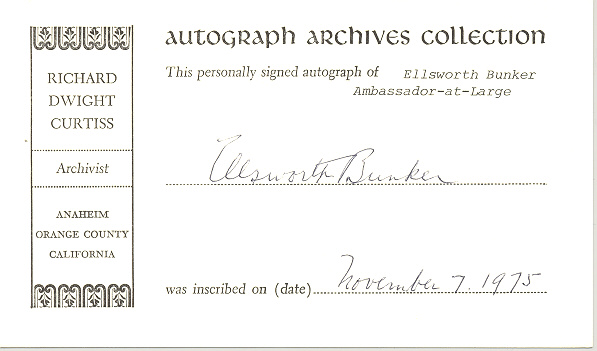 RICHARD
DWIGHT
CURTISS
Archivist
ANAHEIM
ORANGE COUNTY
CALIFORNIA
autograph archives collection
This personally signed autograph of Ellsworth Bunker
Ambassador-at-Large
Ellsworth Bunker
was inscribed on (date) November 7. 1975